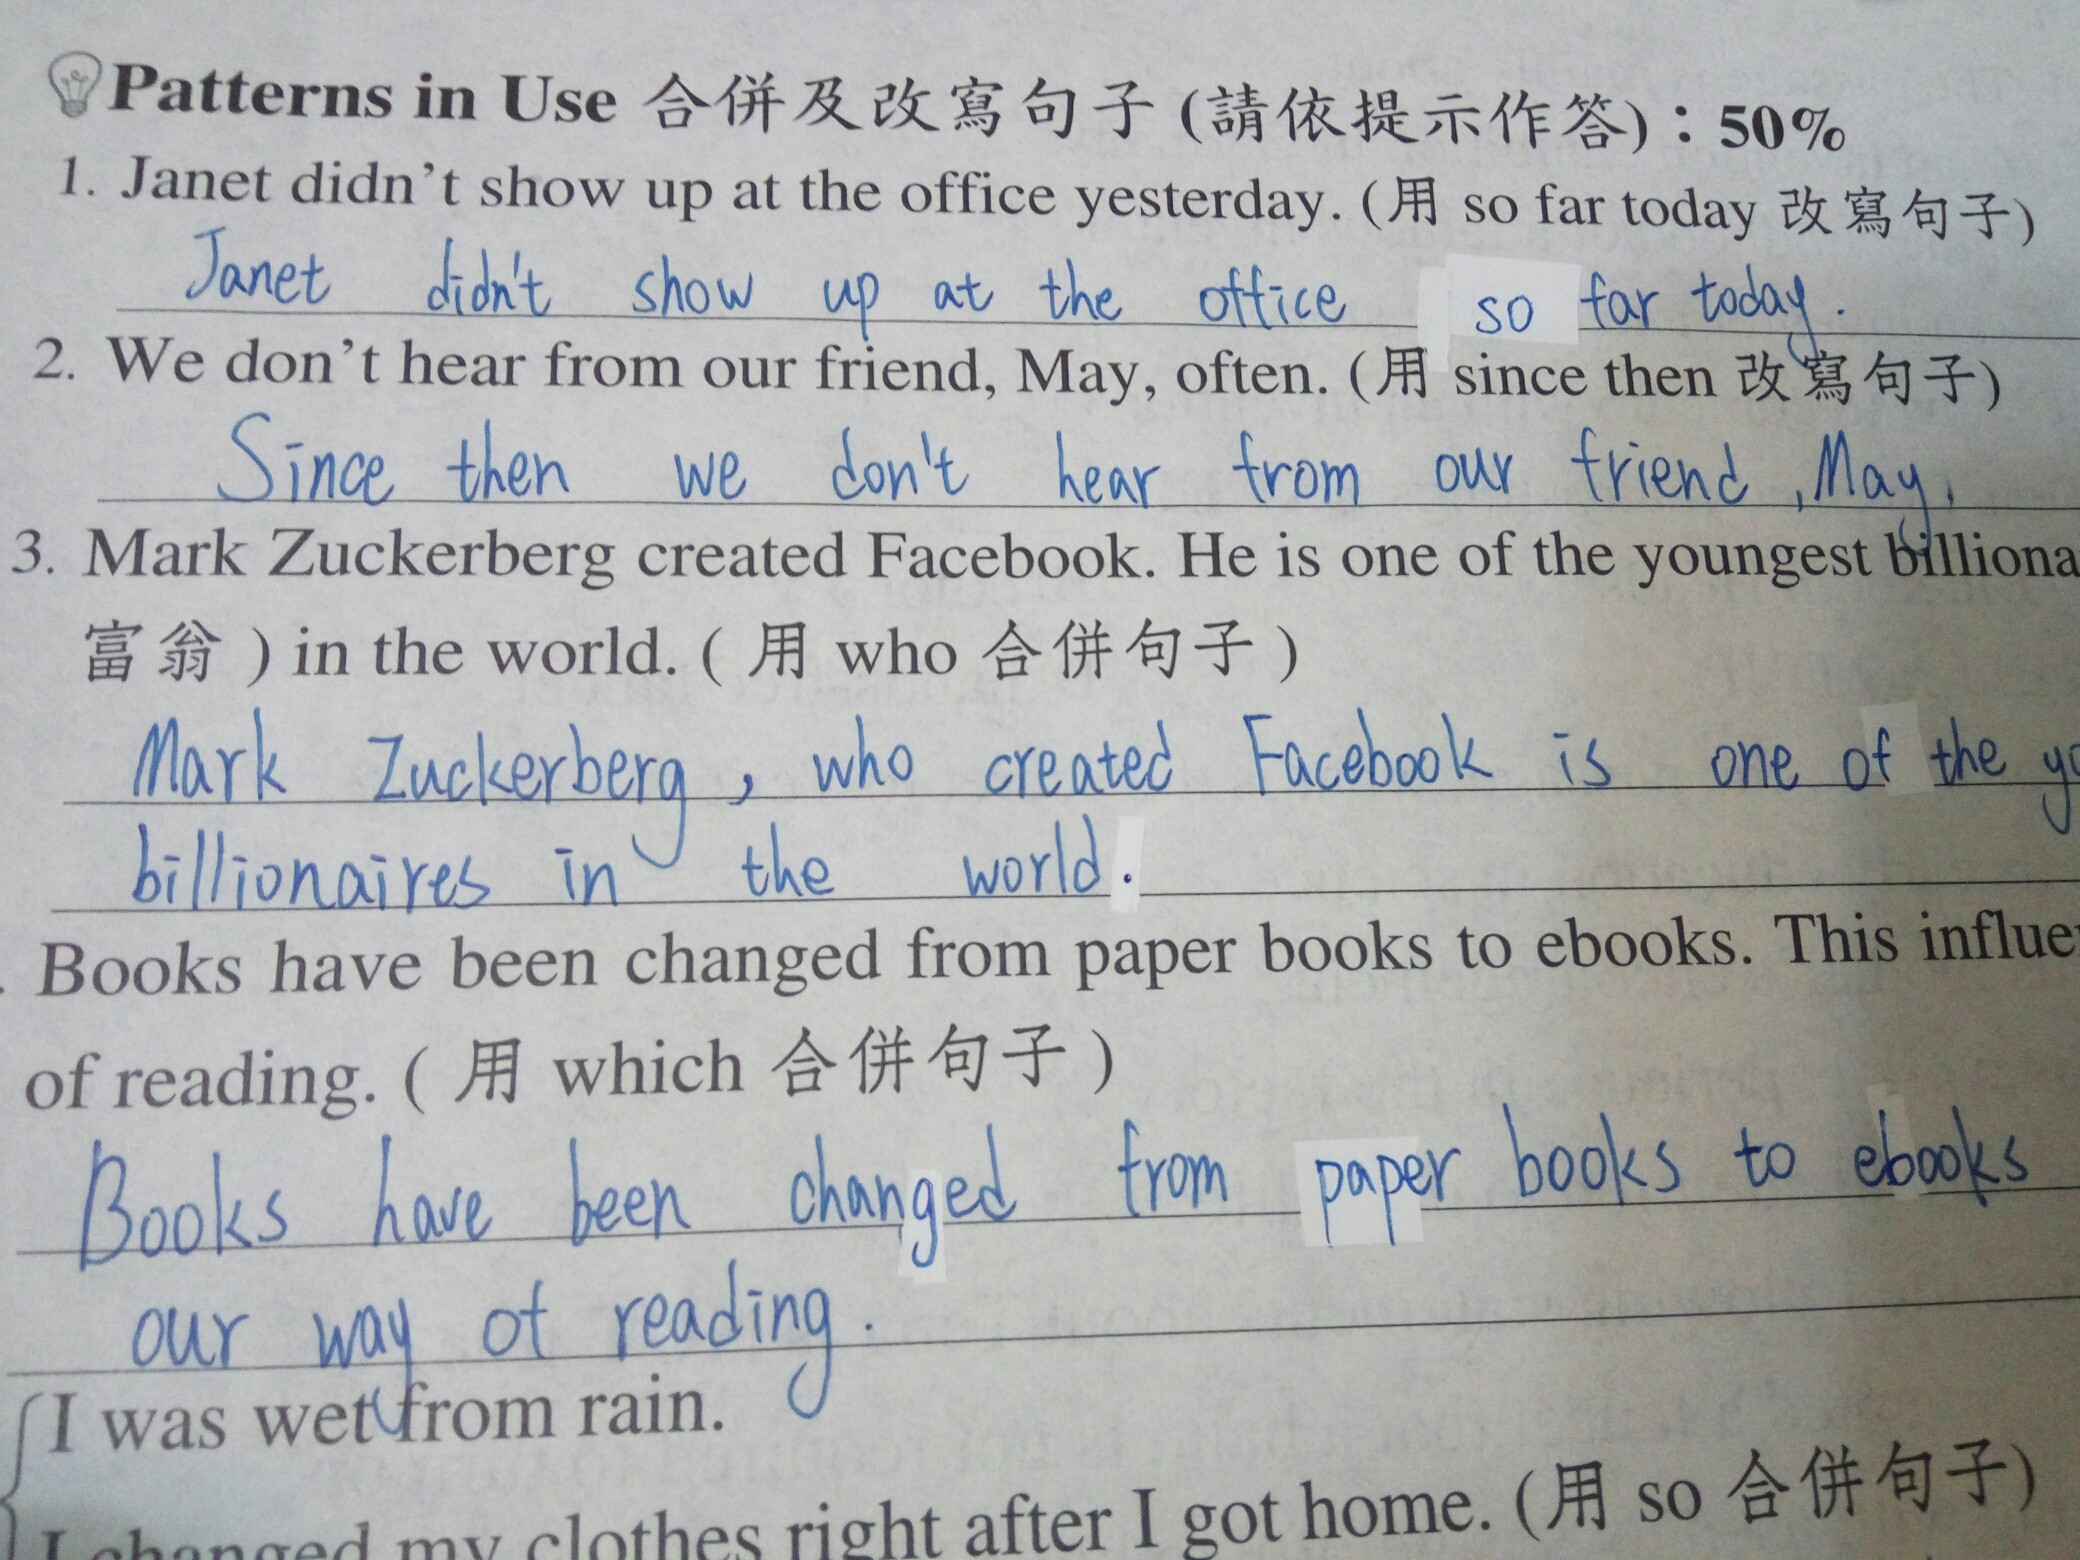 Patterns in Use 合併及改寫句子 (請依提示作答)：50%
1. Janet didn't show up at the office yesterday. (用 so far today 改寫句子)
Janet didn't show up at the office so far today.
2. We don't hear from our friend, May, often. (用 since then 改寫句子)
Since then we don't hear from our friend, May,
3. Mark Zuckerberg created Facebook. He is one of the youngest
富翁) in the world. (用 who 合併句子)
Mark Zuckerberg, who created Facebook is one of the
billionaires in the world.
. Books have been changed from paper books to ebooks. This
of reading. (用 which 合併句子)
Books have been changed from paper books to ebooks
our way of reading.
I was wet from rain.
I changed my clothes right after I got home. (用 so 合併句子)